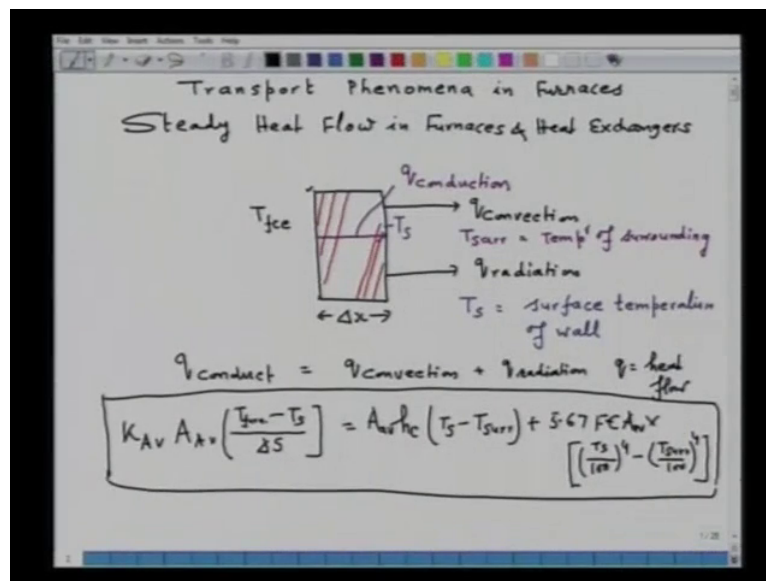 File Edit View Insert Actions Tools Help
Transport Phenomena in Furnaces
Steady Heat Flow in Furnaces & Heat Exchangers
q conduction
T fce
Ts
q convection
Tsurr = Temp' of surrounding
q radiation
← Δx →
Ts = surface temperature of wall
q conduct = q convection + q radiation q = heat flow
K Av A Av (T fce - Ts / ΔS] = A av hc (Ts - Tsurr) + 5.67 F ∈ A av x
[(Ts/100)^4 - (Tsurr/100)^4]
1 / 28